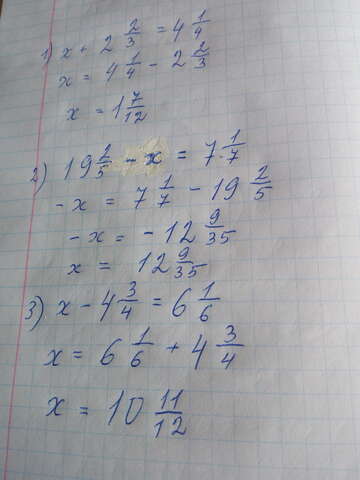 1) x + 2 2/3 = 4 1/4
x = 4 1/4 - 2 2/3
x = 1 7/12
2) 19 2/5 - x = 7 1/7
-x = 7 1/7 - 19 2/5
-x = -12 9/35
x = 12 9/35
3) x - 4 3/4 = 6 1/6
x = 6 1/6 + 4 3/4
x = 10 11/12